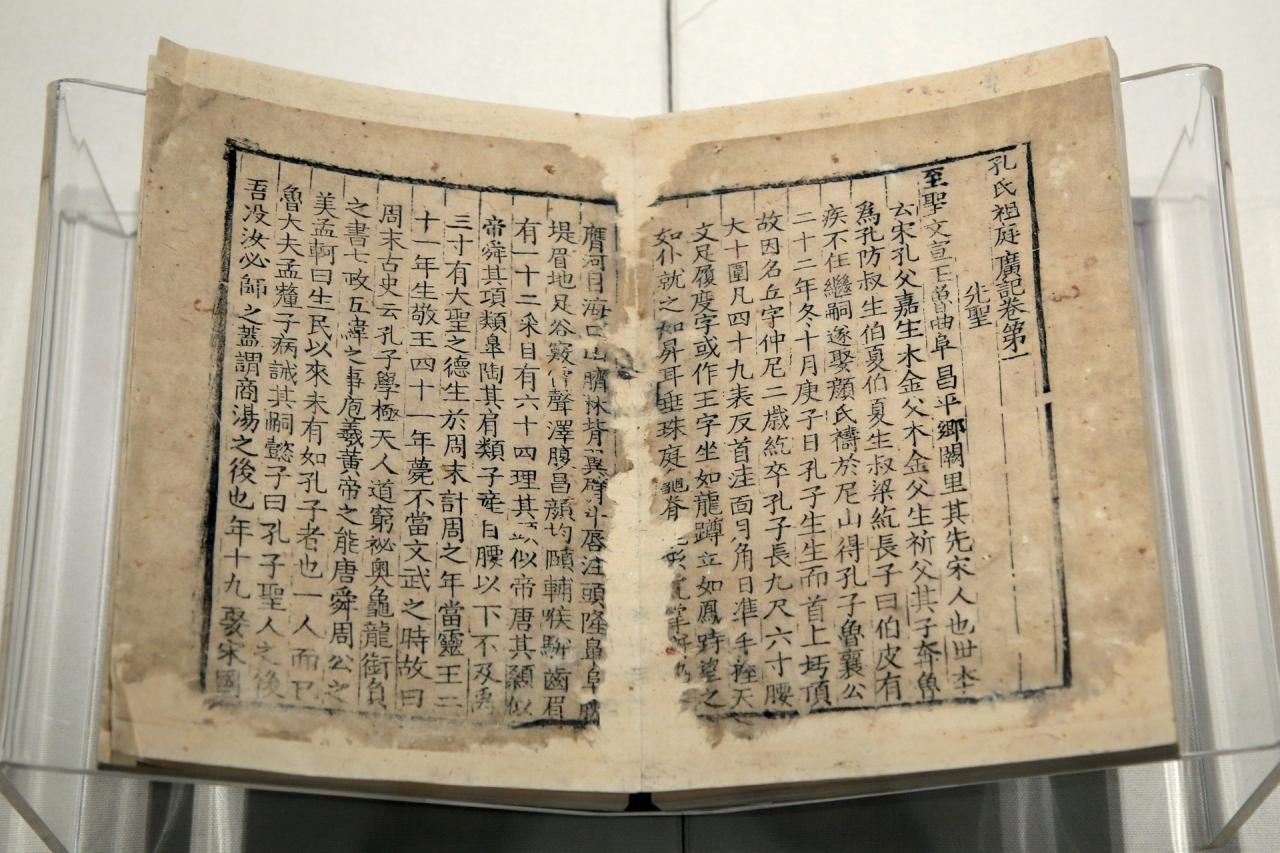 孔氏祖庭廣記卷第一
先聖
至聖文宣王魯曲阜昌平鄉闕里其先宋人也世本
云宋孔父嘉生木金父木金父生祈父其子奔魯
為孔防叔生伯夏伯夏生叔梁紇長子曰伯皮有
疾不任繼嗣遂娶顏氏禱於尼山得孔子魯襄公
二十二年冬十月庚子日孔子生生而首上圩頂
故因名丘字仲尼二歲紇卒孔子長九尺六寸腰
大十圍凡四十九表反首洼面月角日準手握天
文足履度字或作王字坐如龍蹲立如鳳跱望之
如仆就之如昇耳垂珠庭龜脊
膺河目海口山臍林背翼臂斗唇注頭隆鼻阜
堤眉地足谷竅雷聲澤腹昌顏均頤輔喉駢齒眉
有一十二采目有六十四理其似帝唐其顙似
帝舜其項類皋陶其肩類子產自腰以下不及禹
三寸有大聖之德生於周末計周之年當靈王二
十一年生敬王四十一年薨不當文武之時故曰
周末古史云孔子學極天人道窮祕奧龜龍銜負
之書七政五緯之事庖羲黃帝之能唐舜周公之
美孟軻曰生民以來未有如孔子者也一人而已
魯大夫孟釐子病誡其嗣懿子曰孔子聖人之後
吾没汝必師之蓋謂商湯之後也年十九娶宋國